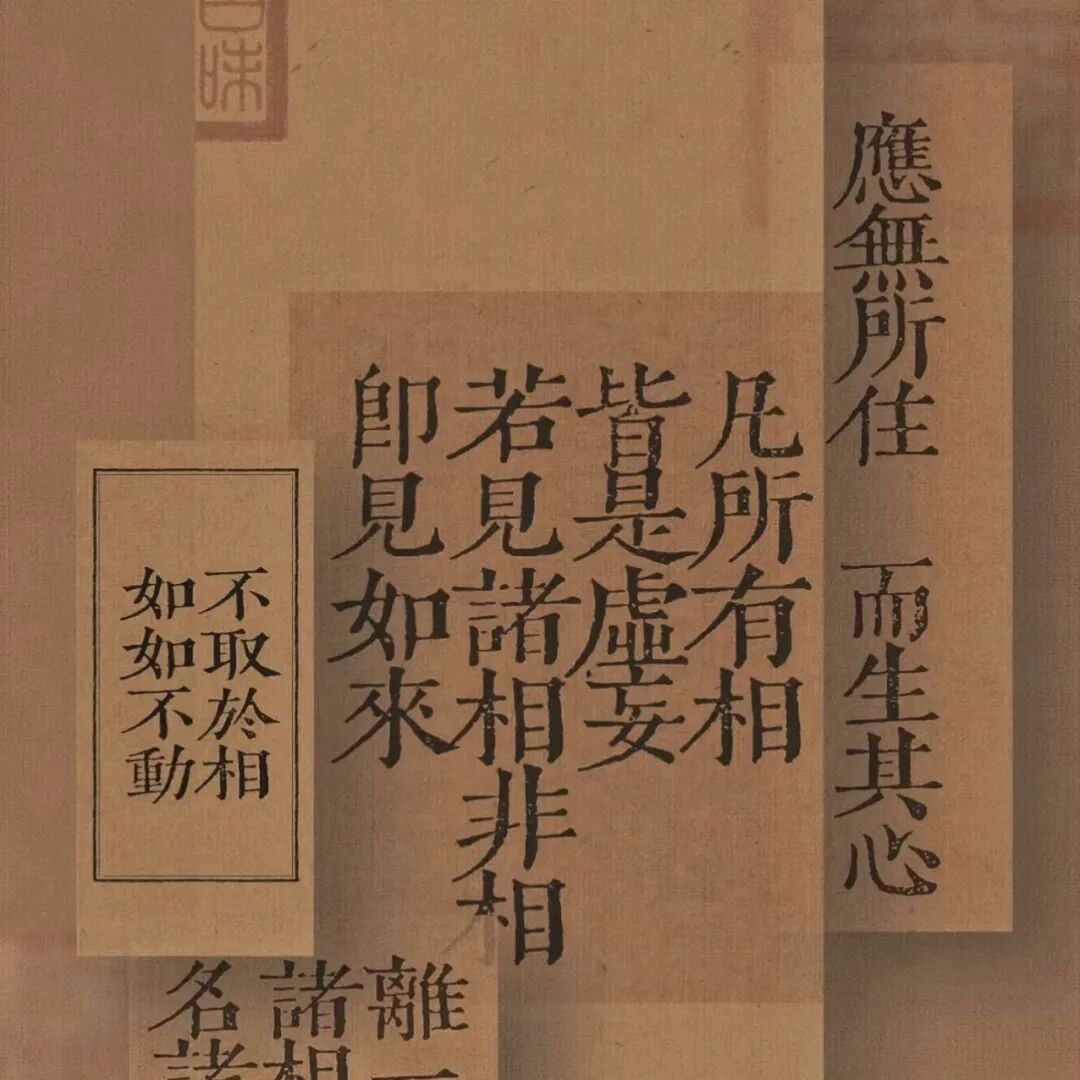 應無所住 而生其心
凡所有相
皆是虛妄
若見諸相非相
即見如來
不取於相
如如不動
離一
諸相
名諸
味